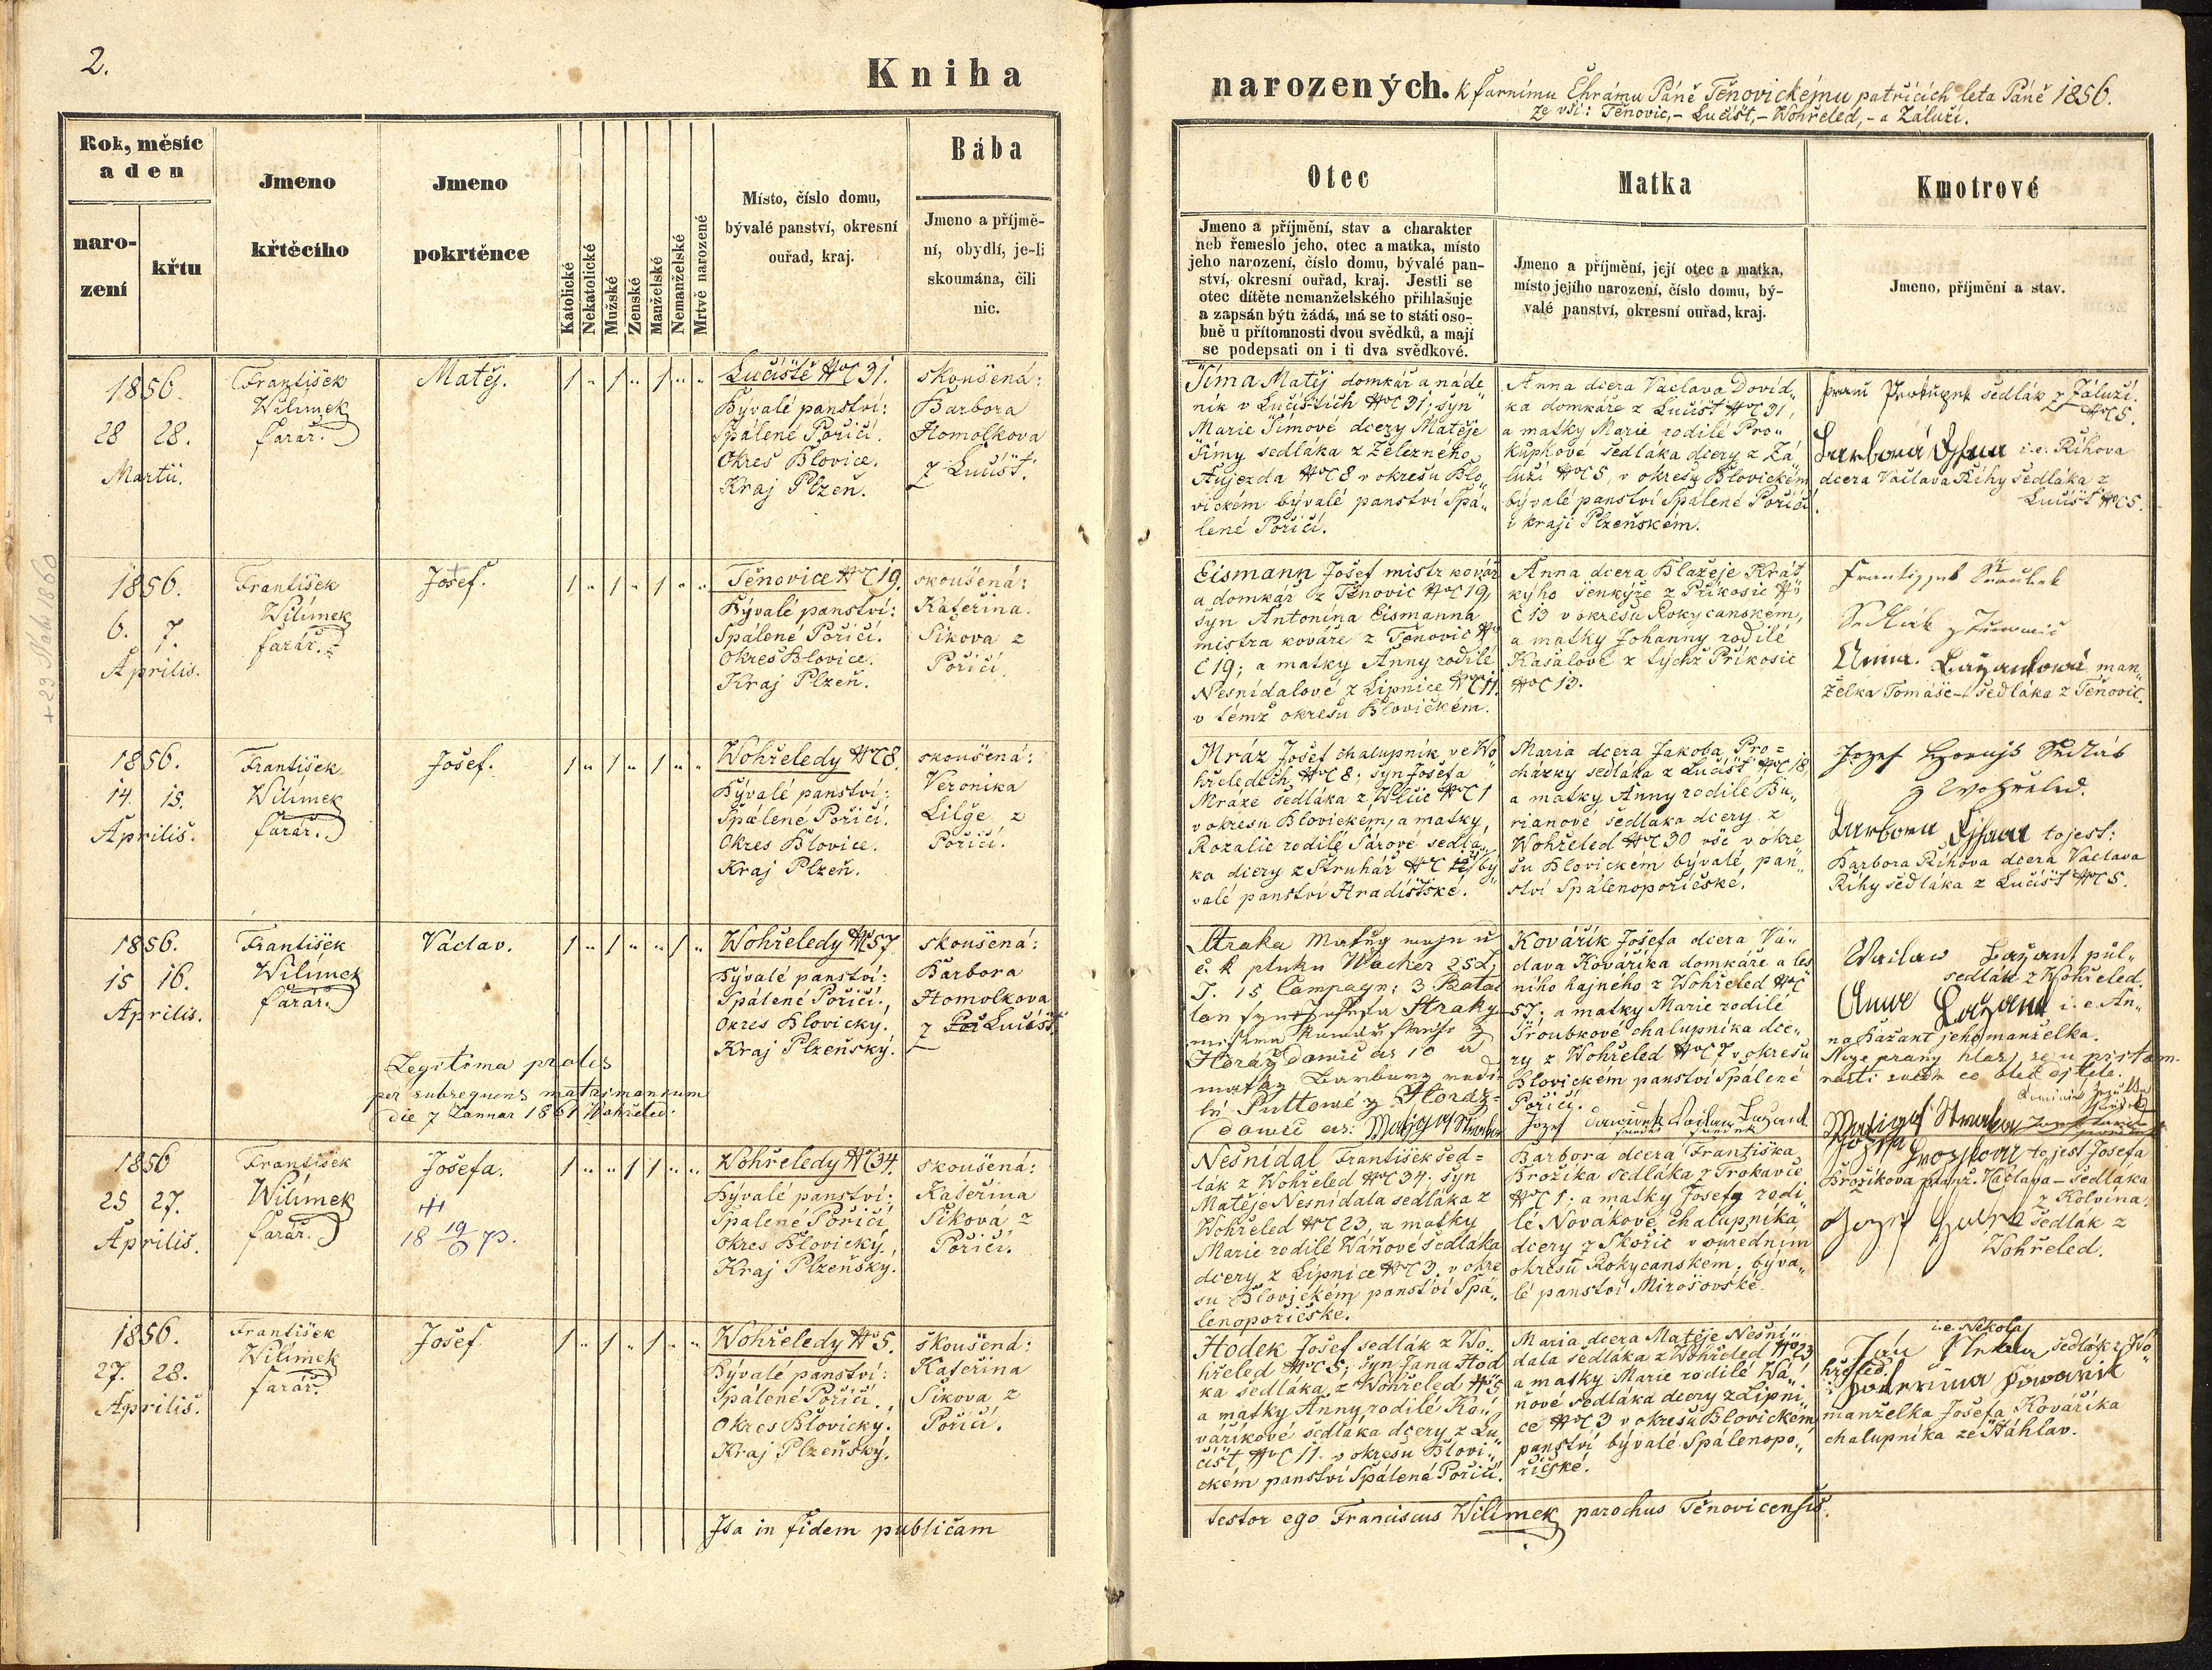 2.
Kniha
narozených. k farnímu Chrámu Páně Těnovickému patřících leta Páně 1856.
ze vsí: Těňovic,- Lučišt,- Wohřeled,- a Záluží.
Rok, měsíc
a den
naro-
zení
křtu
Jmeno
křtěcího
Jmeno
pokrtěnce
Katolické
Nekatolické
Mužské
Zenské
Manželské
Nemanželské
Mrtvě narozené
Místo, číslo domu,
bývalé panství, okresní
ouřad, kraj.
Bába
Jmeno a příjmě-
ní, obydlí, je-li
skoumána, čili
nic.
Otec
Jmeno a příjmění, stav a charakter
neb řemeslo jeho, otec a matka, místo
jeho narození, číslo domu, bývalé pan-
ství, okresní ouřad, kraj. Jestli se
otec dítěte nemanželského přihlašuje
a zapsán býti žádá, má se to státi oso-
bně u přítomnosti dvou svědků, a mají
se podepsati on i ti dva svědkové.
Matka
Jmeno a příjmění, její otec a matka,
místo jejího narození, číslo domu, bý-
valé panství, okresní ouřad, kraj.
Kmotrové
Jmeno, příjmění a stav.
1856.
28 28.
Martii.
František
Wilimek
farář.
Matěj.
1 " 1 " 1 " "
Lučiště NC 31.
Bývalé panství:
Spálené Poříčí.
Okres Blovice.
Kraj Plzeň.
skoušená:
Barbora
Homolkova
z Lučišť.
Šíma Matěj domkář a náde
ník v Lučištích NC 31; syn
Marie Šímové dcery Matěje
Šímy sedláka z Železného
Aujezda NC 8 v okresu Blo"
vickém bývalé panství Spá"
lené Poříčí.
Anna dcera Vaclava Dovid"
ka domkáře z Lučišť NC 31,
a matky Marie rodilé Pro"
kupkové sedláka dcery z Zá
luží NC 5, v okresu Blovickém
bývalé panství Spálené Poříčí
v kraji Plzeňském.
Prokupek sedlák z Záluží.
NC 5.
i.e. Říhova
dcera Vaclava Říhy sedláka z
Lučišť NC 5.
+ 23 1860
1856.
6. 7.
Aprilis.
František
Wilímek
farář.
Josef.
1 " 1 " 1 " "
Těnovice NC 19.
Bývalé panství:
Spálené Poříčí.
Okres Blovice.
Kraj Plzeň.
skoušená:
Kateřina
Síkova z
Poříčí.
Eismann Josef mistr kovář
a domkář z Těnovic NC 19,
syn Antonína Eismanna
mistra kováře z Těnovic N
C 19; a matky Anny rodilé
Nesnídalové z Lipnice NC 11.
v témž okresu Blovickém.
Anna dcera Blažeje Krát
kýho šenkýře z Příkosic N
C 13 v okresu Rokycanském,
a matky Johanny rodilé
Kasalové z týchž Příkosic
NC 13.
Anna. Bažantová man"
želka Tomáše sedláka z Těňovic.
1856.
14. 15.
Aprilis.
František
Wilímek
farář.
Josef.
1 " 1 " 1 " "
Wohřeledy NC 8.
Bývalé panství:
Spálené Poříčí.
Okres Blovice.
Kraj Plzeň.
skoušená:
Veronika
Lilge z
Poříčí.
Mráz Josef chalupník ve Wo
hřeledích NC 8; syn Josefa
Mráze sedláka z Wlčic NC 1
v okresu Blovickém, a matky
Rozalie rodilé Šárové sedlá"
ka dcery z Struhář NC bý"
valé panství Hradištské.
Maria dcera Jakoba Pro=
cházky sedláka z Lučišť NC 18,
a matky Anny rodilé Bu"
rianové sedláka dcery z
Wohřeled NC 30 vše v okre
su Blovickém bývalé pan"
ství Spálenopoříčské.
tojest:
Barbora Říhova dcera Vaclava
Říhy sedláka z Lučišť NC 5.
1856.
15 16.
Aprilis.
František
Wilímek
farář.
Václav.
1 " 1 " " 1 "
Wohřeledy NC 57
Bývalé panství:
Spálené Poříčí.,
Okres Blovický.
Kraj Plzeňský.
skoušená:
Barbora
Homolkova
z Lučišť.
Legitima proles
per subsequens matrimonium
die 7 Januar 1861 Wohřeled:
Straka Matěj
č. k pluku Wacher 25 L.
J. 15 Compagn: 3 Batai
lon syn Josefa Straky
Horaždowic
matky Barbory rodi
lé z Horaž=
dowic
Kovářík Josefa dcera Vá"
clava Kováříka domkáře a les
ního hajného z Wohřeled NC
57; a matky Marie rodilé
Troubkové chalupníka dce"
ry z Wohřeled NC 7 v okresu
Blovickém panství Spálené
Poříčí.
Waclaw Bažant půl"
sedlák z Wohřeled.
i.e. An"
na Bažant jeho manželka.
1856
25 27.
Aprilis.
František
Wilímek
farář.
Josefa.
18 19/6 73.
1 " " 1 1 " "
Wohřeledy NC 34.
Bývalé panství:
Spálené Poříčí
Okres Blovický.,
Kraj Plzeňský.
skoušená:
Kateřina
Síková z
Poříčí.
Nesnídal František sed=
lák z Wohřeled NC 34. syn
Matěje Nesnídala sedláka z
Wohřeled NC 23, a matky
Marie rodilé Wáňové sedláka
dcery z Lipnice NC 3, v okre
su Blovickém panství Spá"
lenopoříčské.
Barbora dcera Františka
Brožíka sedláka z Trokavce
NC 1; a matky Josefy rodi
lé Novákové, chalupníka
dcery z Skořic v ouředním
okresu Rokycanském, býva"
lé panství Mirošovské.
tojest Josefa
Brožíkova manž. Václava sedláka
z Kolvína.
sedlák z
Wohřeled.
1856.
27. 28.
Aprilis.
František
Wilímek
farář.
Josef
1 " 1 " 1 " "
Wohřeledy N 5.
Bývalé panství:
Spálené Poříčí.,
Okres Blovický.
Kraj Plzeňský.
skoušená:
Kateřina
Síkova z
Poříčí.
Hodek Josef sedlák z Wo"
hřeled NC 5; syn Jana Hod
ka sedláka z Wohřeled N 5
a matky Anny rodilé Ko"
váříkové sedláka dcery z Lu
čišť NC 11. v okresu Blovi"
ckém panství Spálené Poříčí.
Maria dcera Matěje Nesní"
dala sedláka z Wohřeled NC 23
a matky Marie rodilé Wá"
ňové sedláka dcery z Lipni"
ce NC 3 v okresu Blovickém
panství bývalé Spálenopo"
říčské.
i.e. Nikola
Ján sedlák z Wo"
hřeled.
manželka Josefa Kováříka
chalupníka ze Štáhlav.
Ita in fidem publicam
testor ego Franciscus Wilímek parochus Těnovicensis.